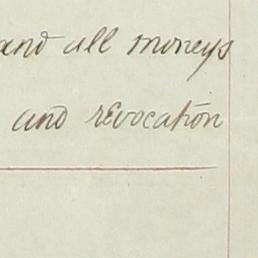 and all moneys
and revocation